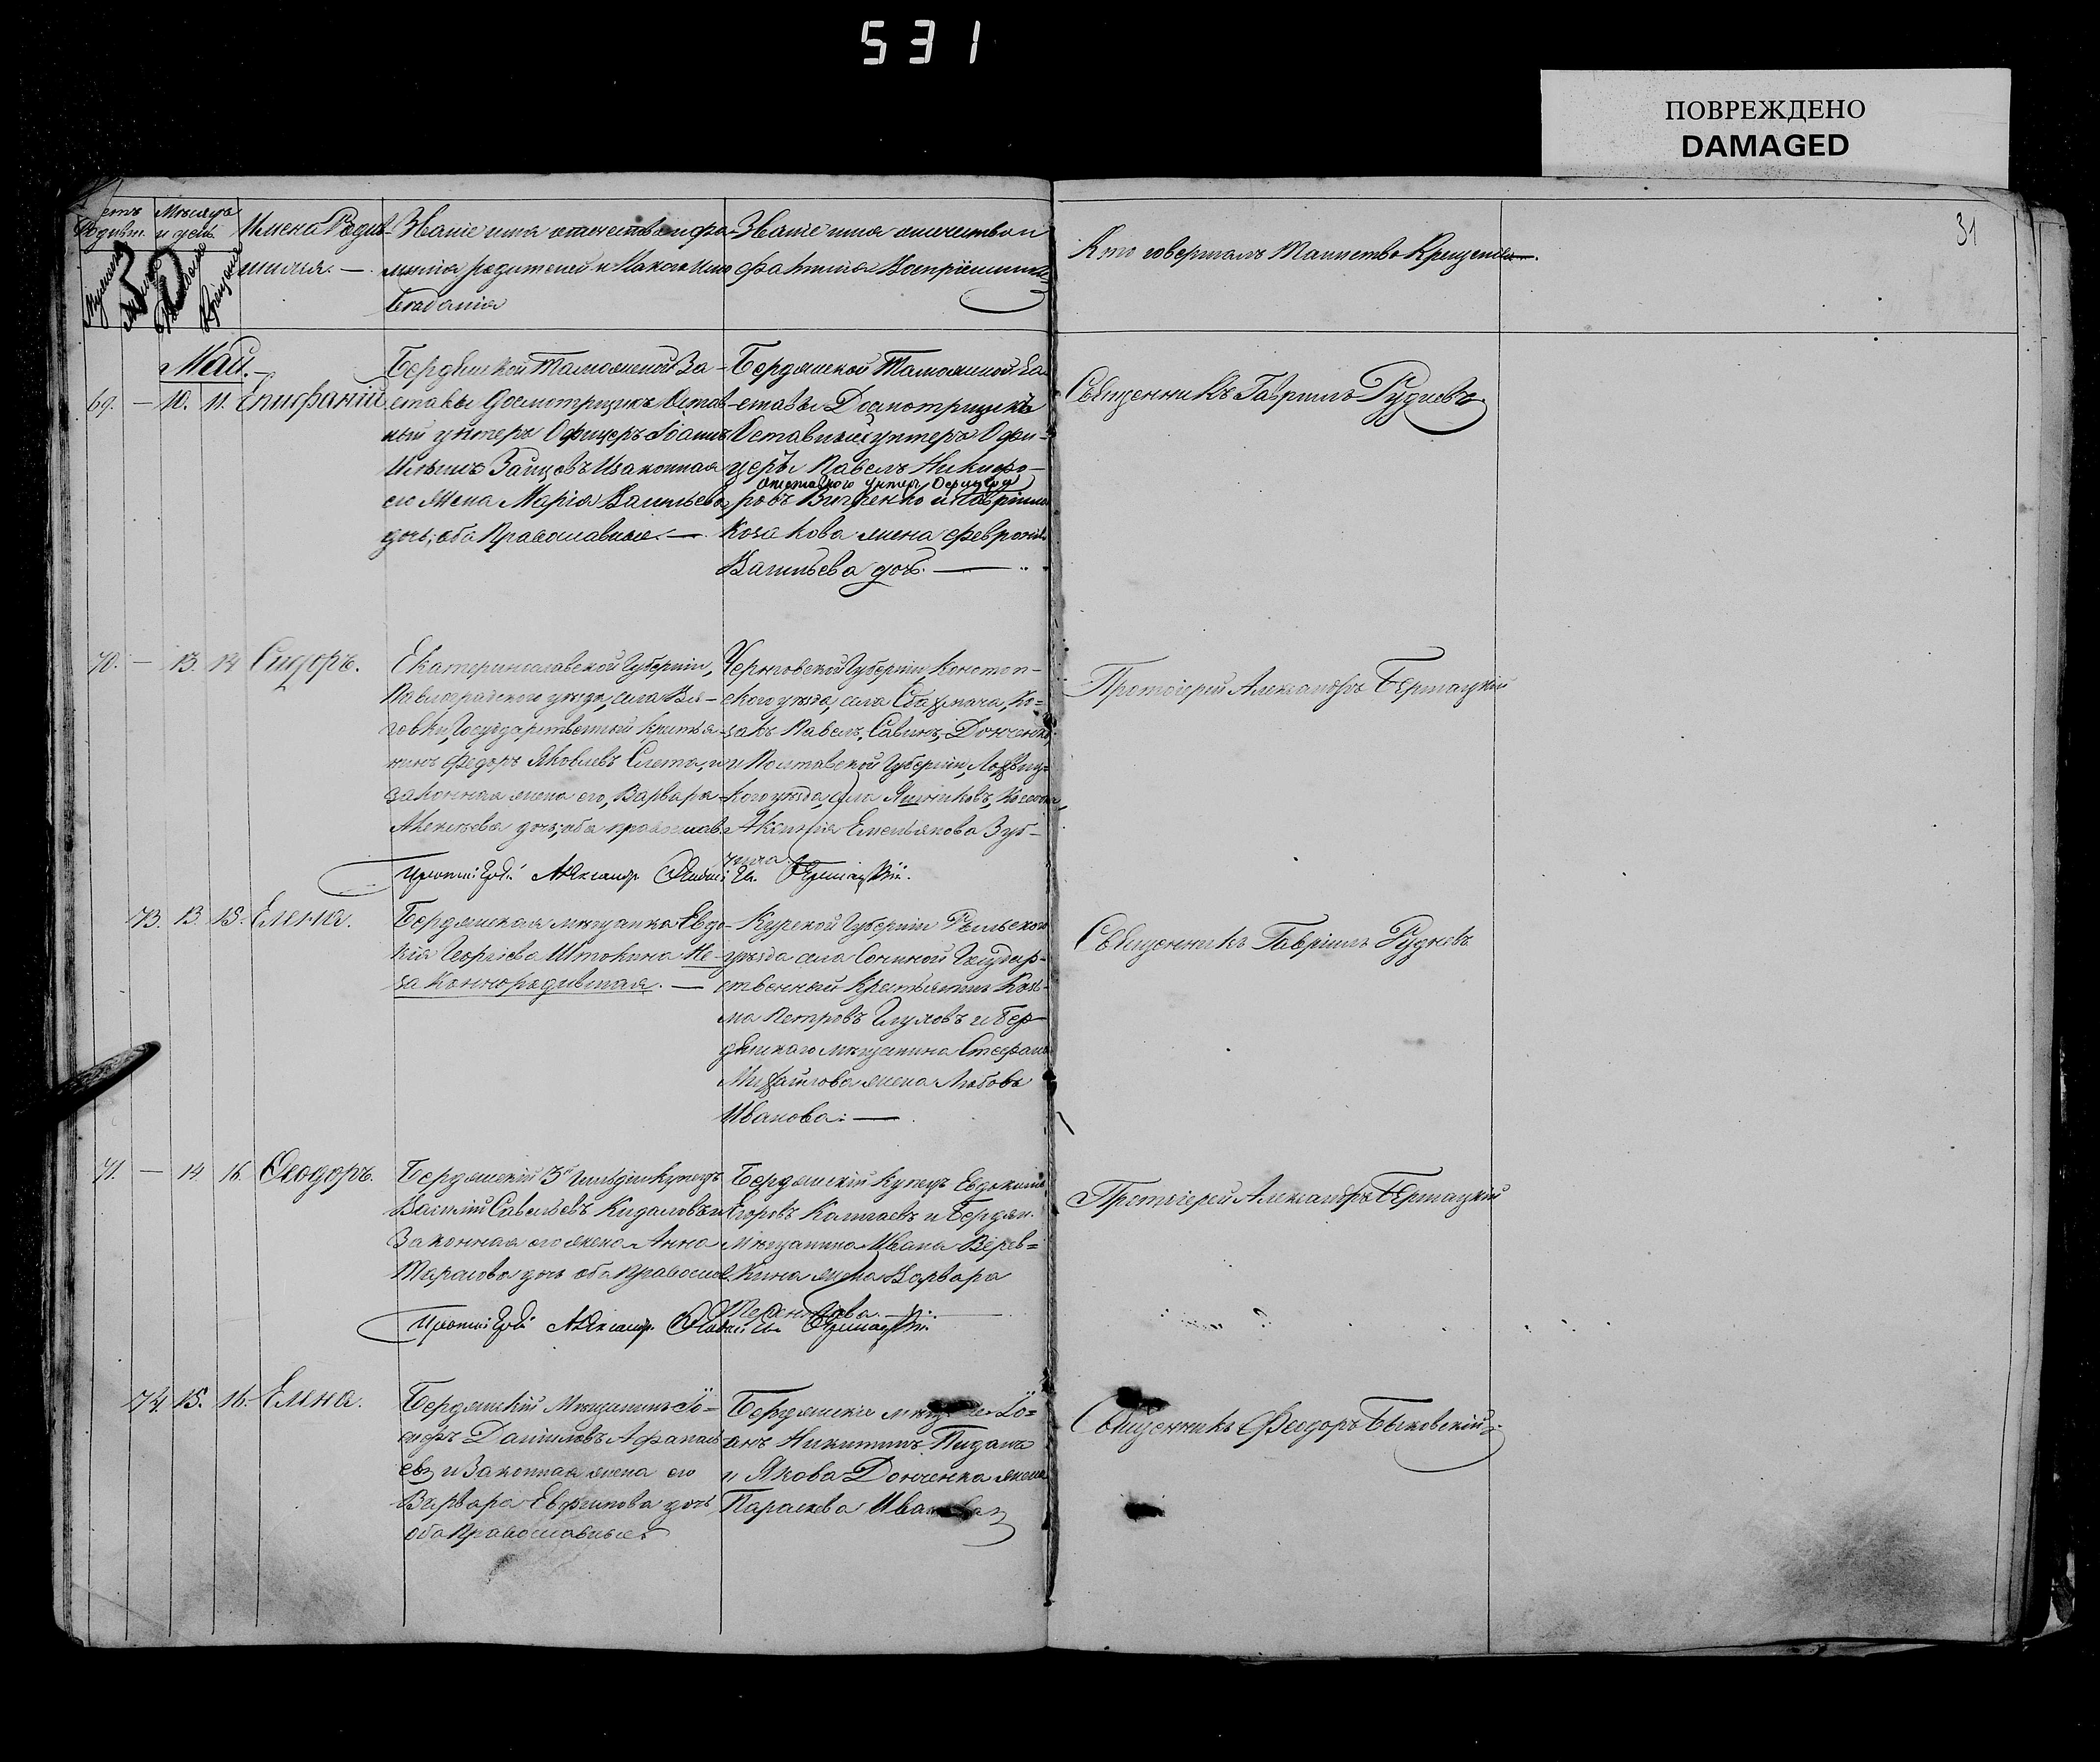 531
ПОВРЕЖДЕНО
DAMAGED
31
Имена Родив-
шихся.
Званіе имя отечество и фа-
милія родителей и какого Испо-
веданія
Званіе имя отечество и
фамилія Воспріемник
Кто совершалъ Таинство Крещенія.
Май.
69. — 10. 11. Епифаній
Бердянской Таможеной За-
ставы Досмотрщикъ Отстав-
ный унтеръ Офицеръ Іоаннъ
Ильинъ Зайцовъ и законная
его жена Марія Васильева
дочь, оба Православные. —
Бердянской Таможеной За-
ставы Досмотрщикъ
Отставные унтеръ Офи-
церъ Павелъ Никифо-
отставного унтеръ Офицера
ровъ и Гаврiила
Козакова жена Февронія
Васильева дочь. —
Священникъ Гавріилъ Рудневъ
70. — 13. 14 Сидоръ.
Екатеринославской Губерніи,
Павлоградского уезда, села Вя-
зовки, Государственный Крестья-
нинъ Федоръ Яковлевъ Слета, и
законная жена его, Варвара
Алексеева дочь, оба православ.
Черниговской Губерніи Коното-
ского уезда, села Сбахмача, Ко-
закъ Павелъ Савинъ Донченко
и Полтавской Губерніи, Лохвиц-
кого уезда, села Яшниковъ, Козачка
Аксинія Емельянова Зуб-
Протоіерей Александръ Бершацкій
Протоіерей Александръ
73. 13. 15. Елена.
Бердянская мещанка Евдо-
кія Георгіева Штокина Не-
законнородившая. —
Курской Губерніи Рыльского
уезда села Сонина Государ-
ственный Крестьянинъ Козь-
ма Петровъ Глуховъ и Бер-
дянскаго мещанина Стефана
Михайлова жена Любовь
Иванова: —
Священникъ Гавріилъ Рудневъ
71. — 14 16. Ѳеодоръ.
Бердянскій 3й Гильдіи Купецъ
Василій Савельевъ Кидаловъ и
Законная его жена Анна
Тарасова дочь оба Православ.
Бердянскій Купецъ Евдокимъ
Егоровъ Калгаевъ и Бердян.
мещанина Ивана Верев-
кина жена Варвара
Терентьева. —
Протоіерей Александръ Бершацкій
Протоіерей Александръ
74. 15. 16. Елена.
Бердянскій Мещанинъ Іо-
сифъ Даниловъ Афанась-
евъ и Законная жена его
Варвара Евфимова дочь
оба Православные
Бердянскіе Іо-
анъ Никитинъ Пиданъ
и Якова Донченка жена
Параскева Иванова
Священникъ Феодоръ Быковскій